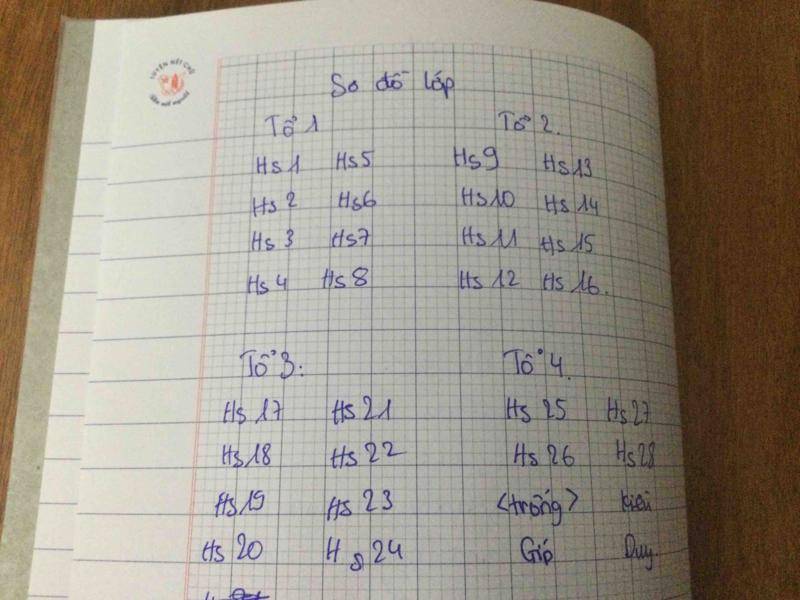 LUYỆN NÉT CHỮ
Rèn nết người
Sơ đồ lớp
Tổ 1 Tổ 2.
Hs 1 Hs 5 Hs 9 Hs 13
Hs 2 Hs 6 Hs 10 Hs 14
Hs 3 Hs 7 Hs 11 Hs 15
Hs 4 Hs 8 Hs 12 Hs 16.
Tổ 3: Tổ 4.
Hs 17 Hs 21 Hs 25 Hs 27
Hs 18 Hs 22 Hs 26 Hs 28
Hs 19 Hs 23 <trống>
Hs 20 Hs 24 Gíp Duy.